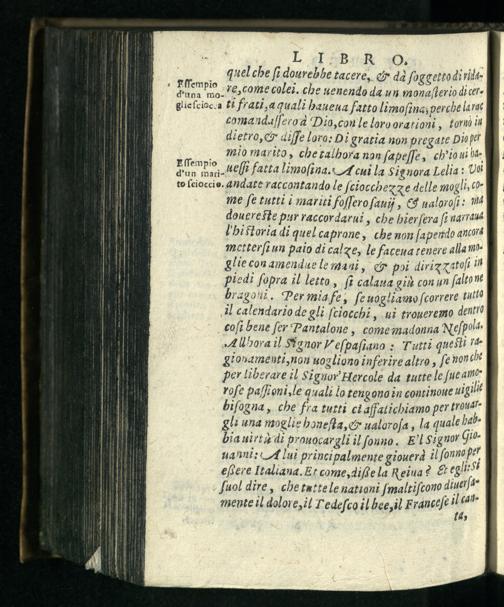 LIBRO.
Essempio
d'una mo-
glie sciocca
Essempio
d'un mari-
to scioccio.
quel che si dourebbe tacere, & dà soggetto di rida-
re, come colei. che uenendo da un monasterio di cer-
ti frati, a quali haueua fatto limosina, perche la rac
comandassero à Dio, con le loro orationi, tornò in
dietro, & disse loro: Di gratia non pregate Dio per
mio marito, che talhora non sapesse, ch'io ui ha-
uessi fatta limosina. A cui la Signora Lelia: Voi
andate raccontando le sciocchezze delle mogli, co-
me se tutti i mariti fossero sauij, & ualorosi: ma
douereste pur raccordarui, che hiersera si narraua
l'historia di quel caprone, che non sapendo ancora
mettersi un paio di calze, le faceua tenere alla mo-
glie con amendue le mani, & poi dirizzatosi in
piedi sopra il letto, si calaua giù con un salto ne
bragoni. Per mia fe, se uogliamo scorrere tutto
il calendario de gli sciocchi, ui troueremo dentro
cosi bene ser Pantalone, come madonna Nespola.
Allhora il Signor Vespasiano: Tutti questi ra-
gionamenti, non uogliono inferire altro, se non che
per liberare il Signor Hercole da tutte le sue amo-
rose passioni, le quali lo tengono in continoue uigilie
bisogna, che fra tutti ci affatichiamo per trouar-
gli una moglie honesta, & ualorosa, la quale hab-
bia uirtù di prouocargli il sonno. E'l Signor Gio-
uanni: A lui principalmente giouerà il sonno per
eßere Italiana. Et come, diße la Reina? Et egli: Si
suol dire, che tutte le nationi smaltiscono diuersa-
mente il dolore, il Tedesco il bee, il Francese il can-
ta,